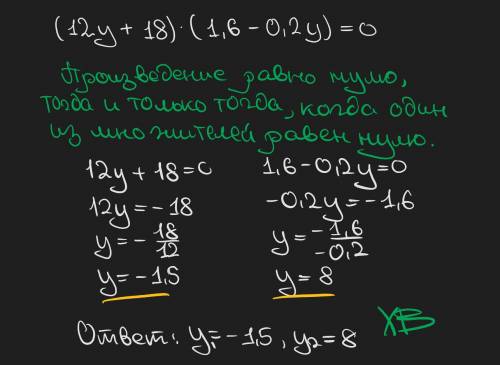 (12y + 18) · (1,6 - 0,2y) = 0
Произведение равно нулю,
тогда и только тогда, когда один
из множителей равен нулю.
12y + 18 = 0
12y = - 18
y = - 18/12
y = - 1,5
1,6 - 0,2y = 0
-0,2y = - 1,6
y = -1,6/-0,2
y = 8
Ответ: y₁ = - 1,5, y₂ = 8
ХВ